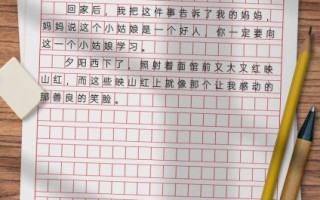 回家后，我把这件事告诉了我的妈妈，
妈妈说这个小姑娘是一个好人，你一定要向
这一个小姑娘学习。
夕阳西下了，照射着面馆前又大又红映
山红，而这些映山红上就像那个让我感动的
那善良的笑脸。